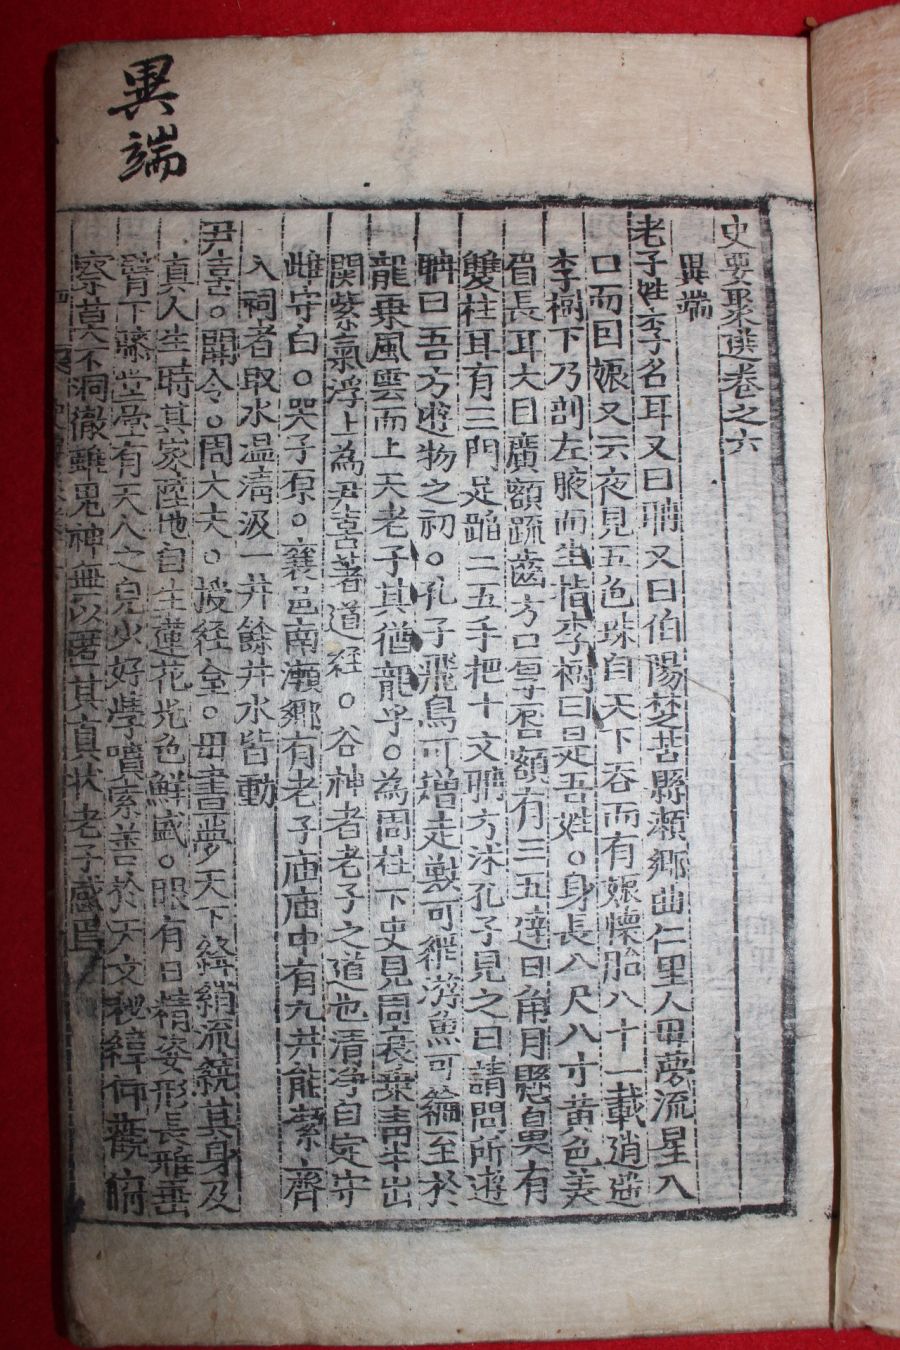 異端
史要聚選卷之六
異端
老子姓李名耳又曰聃又曰伯陽楚苦縣瀨鄉曲仁里人毋夢流星入
口而回娠又云夜見五色珠自天下吞而有娠懷胎八十一載逍遥
李樹下乃剖左腋而生指李樹曰是吾姓○身長八尺八寸黃色美
眉長耳大目廣額疏齒方口厚唇額有三五達日角月懸鼻有
雙柱耳有三門足蹈二五手把十文聃方沐孔子見之曰請問所遊
聃曰吾方遊物之初○孔子飛鳥可增走獸可網游魚可綸至於
龍乘風雲而上天老子其猶龍乎○為周柱下史見周衰乘青牛出
関紫氣浮上為尹喜著道経○谷神者老子之道也清净自定守
雌守白○哭子原○襄邑南瀨鄉有老子庙庙中有九井能潔齊
入祠者取水温淸汲一井餘井水皆動
尹喜○關令○周大夫○授経台○毋書夢天下絳綃流繞其身及
真人生時其家陸地自生蓮花光色鮮盛○眼有日精姿形長雅垂
臂下膝堂堂有天人之皃少好學墳索善於天文秘緯仰觀俯
察莫不洞徹雖鬼神無以匿其真状老子感